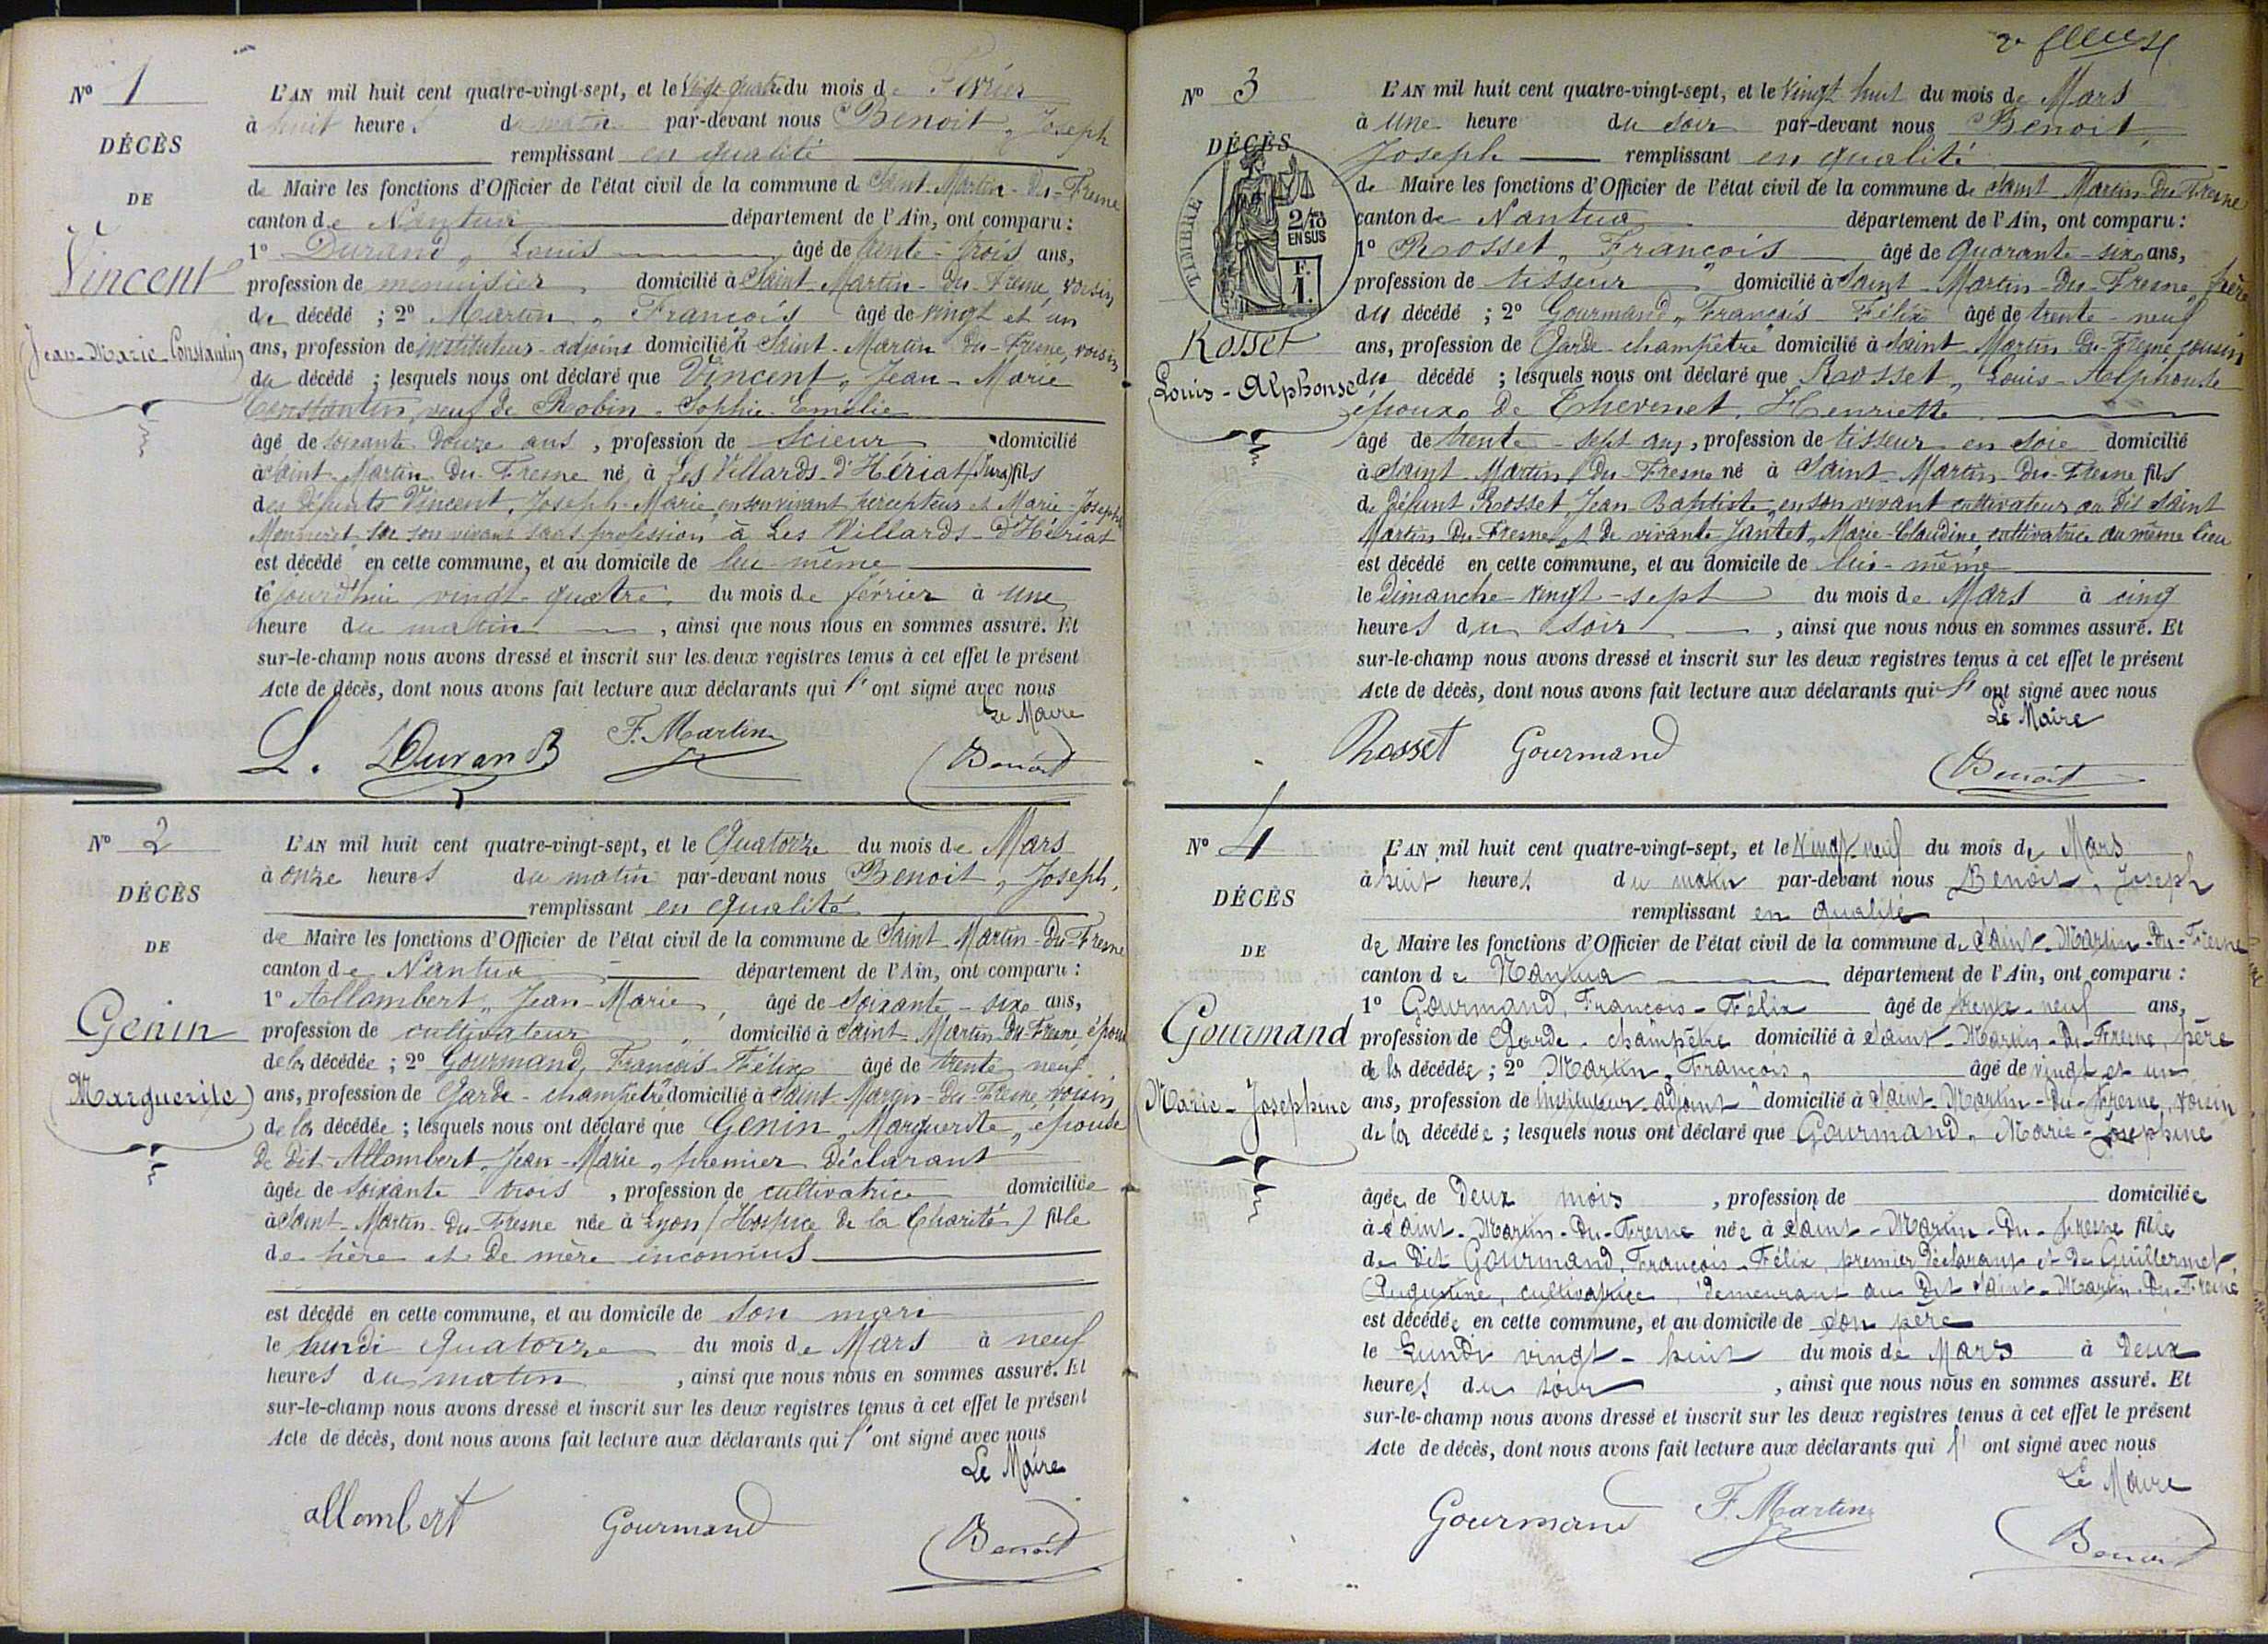 Nº 1
DÉCÈS
DE
Vincent
Jean-Marie-Constantin
L'AN mil huit cent quatre-vingt-sept, et le vingt quatre du mois de Février
à huit heures du matin par-devant nous Benoit, Joseph
remplissant en qualité
de Maire les fonctions d'Officier de l'état civil de la commune de Saint-Martin-du-Fresne
canton de Nantua département de l'Ain, ont comparu :
1º Durand, Louis âgé de trente-trois ans,
profession de menuisier, domicilié à Saint-Martin-du-Fresne, voisin
du décédé ; 2º Martin, François âgé de vingt et un
ans, profession de instituteur-adjoint domicilié à Saint-Martin-du-Fresne, voisin
du décédé ; lesquels nous ont déclaré que Vincent, Jean-Marie
Constantin, veuf de Robin, Sophie-Emélie
âgé de soixante douze ans, profession de scieur domicilié
à Saint-Martin-du-Fresne né à Les Villards-d'Hériat (Jura) fils
des défunts Vincent, Joseph-Marie, en son vivant percepteur et Marie-Josephe
Monneret en son vivant sans profession à Les Villards-d'Hériat
est décédé en cette commune, et au domicile de lui-même
le jourd'hui vingt-quatre du mois de février à une
heure du matin, ainsi que nous nous en sommes assuré. Et
sur-le-champ nous avons dressé et inscrit sur les deux registres tenus à cet effet le présent
Acte de décès, dont nous avons fait lecture aux déclarants qui l'ont signé avec nous
Le Maire
L. Durand F. Martin Benoit
Nº 2
DÉCÈS
DE
Genin
Marguerite
L'AN mil huit cent quatre-vingt-sept, et le Quatorze du mois de Mars
à onze heures du matin par-devant nous Benoit, Joseph,
remplissant en qualité
de Maire les fonctions d'Officier de l'état civil de la commune de Saint-Martin-du-Fresne
canton de Nantua département de l'Ain, ont comparu :
1º Allombert, Jean-Marie, âgé de soixante-six ans,
profession de cultivateur, domicilié à Saint-Martin-du-Fresne époux
de la décédée ; 2º Gourmand, François-Félix âgé de trente neuf
ans, profession de Garde-champêtre domicilié à Saint-Martin-du-Fresne, voisin
de la décédée ; lesquels nous ont déclaré que Genin, Marguerite, épouse
de dit Allombert, Jean-Marie, premier déclarant
âgée de soixante trois, profession de cultivatrice domiciliée
à Saint-Martin-du-Fresne née à Lyon (Hospice de la Charité) fille
de père et de mère inconnus
est décédé en cette commune, et au domicile de son mari
le lundi quatorze du mois de Mars à neuf
heures du matin, ainsi que nous nous en sommes assuré. Et
sur-le-champ nous avons dressé et inscrit sur les deux registres tenus à cet effet le présent
Acte de décès, dont nous avons fait lecture aux déclarants qui l'ont signé avec nous
Le Maire
allombert Gourmand Benoit
Nº 3
DÉCÈS
TIMBRE
2/10
EN SUS
F.
1.
Rosset
Louis-Alphonse
L'AN mil huit cent quatre-vingt-sept, et le vingt huit du mois de Mars
à une heure du soir par-devant nous Benoit,
Joseph remplissant en qualité
de Maire les fonctions d'Officier de l'état civil de la commune de Saint-Martin-du-Fresne
canton de Nantua département de l'Ain, ont comparu :
1º Rosset, François âgé de quarante-six ans,
profession de tisseur domicilié à Saint-Martin-du-Fresne, frère
du décédé ; 2º Gourmand, François-Félix âgé de trente-neuf
ans, profession de Garde-champêtre domicilié à Saint-Martin-du-Fresne cousin
du décédé ; lesquels nous ont déclaré que Rosset, Louis-Alphonse
époux de Thevenet, Henriette
âgé de trente-sept ans, profession de tisseur en soie domicilié
à Saint-Martin-du-Fresne né à Saint-Martin-du-Fresne fils
de défunt Rosset, Jean Baptiste, en son vivant cultivateur au dit Saint
Martin-du-Fresne et de vivante Jantet, Marie-Claudine, cultivatrice au même lieu
est décédé en cette commune, et au domicile de lui-même
le dimanche vingt-sept du mois de Mars à cinq
heures du soir, ainsi que nous nous en sommes assuré. Et
sur-le-champ nous avons dressé et inscrit sur les deux registres tenus à cet effet le présent
Acte de décès, dont nous avons fait lecture aux déclarants qui l'ont signé avec nous
Le Maire
Rosset Gourmand Benoit
Nº 4
DÉCÈS
DE
Gourmand
Marie-Josephine
L'AN mil huit cent quatre-vingt-sept, et le vingt-neuf du mois de Mars
à huit heures du matin par-devant nous Benoit, Joseph
remplissant en qualité
de Maire les fonctions d'Officier de l'état civil de la commune de Saint-Martin-du-Fresne
canton de Nantua département de l'Ain, ont comparu :
1º Gourmand, François-Félix âgé de trente-neuf ans,
profession de Garde-champêtre domicilié à Saint-Martin-du-Fresne, père
de la décédée ; 2º Martin, François, âgé de vingt et un
ans, profession de instituteur-adjoint domicilié à Saint-Martin-du-Fresne, voisin
de la décédée ; lesquels nous ont déclaré que Gourmand, Marie-Josephine
âgée de deux mois, profession de domiciliée
à Saint-Martin-du-Fresne née à Saint-Martin-du-Fresne fille
de dit Gourmand, François-Félix, premier déclarant et de Guillermet
Augustine, cultivatrice, demeurant au dit Saint-Martin-du-Fresne
est décédée en cette commune, et au domicile de son père
le Lundi vingt-huit du mois de Mars à deux
heures du soir, ainsi que nous nous en sommes assuré. Et
sur-le-champ nous avons dressé et inscrit sur les deux registres tenus à cet effet le présent
Acte de décès, dont nous avons fait lecture aux déclarants qui l'ont signé avec nous
Le Maire
Gourmand F. Martin Benoit